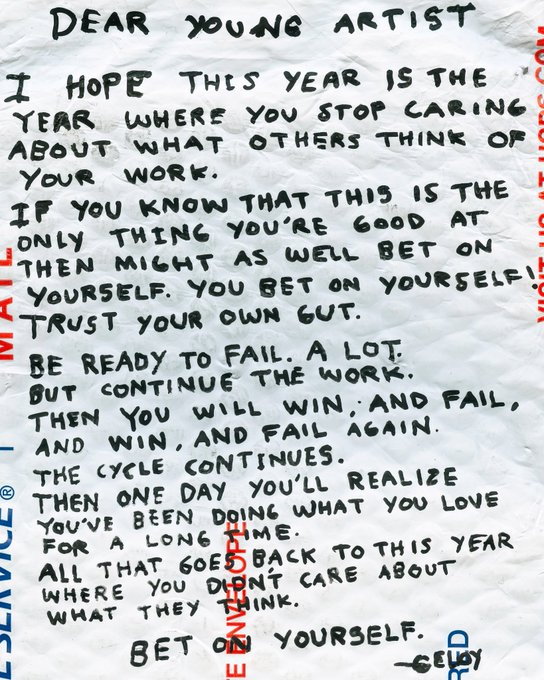 DEAR YOUNG ARTIST
I HOPE THIS YEAR IS THE
YEAR WHERE YOU STOP CARING
ABOUT WHAT OTHERS THINK OF
YOUR WORK.
IF YOU KNOW THAT THIS IS THE
ONLY THING YOU'RE GOOD AT
THEN MIGHT AS WELL BET ON
YOURSELF. YOU BET ON YOURSELF!
TRUST YOUR OWN GUT.
BE READY TO FAIL. A LOT.
BUT CONTINUE THE WORK.
THEN YOU WILL WIN, AND FAIL,
AND WIN, AND FAIL AGAIN.
THE CYCLE CONTINUES.
THEN ONE DAY YOU'LL REALIZE
YOU'VE BEEN DOING WHAT YOU LOVE
FOR A LONG TIME.
ALL THAT GOES BACK TO THIS YEAR
WHERE YOU DIDN'T CARE ABOUT
WHAT THEY THINK.
BET ON YOURSELF.
—CELOY
MAIL
E SERVICE®
E ENVELOPE
RD
VISIT US AT USPS.COM